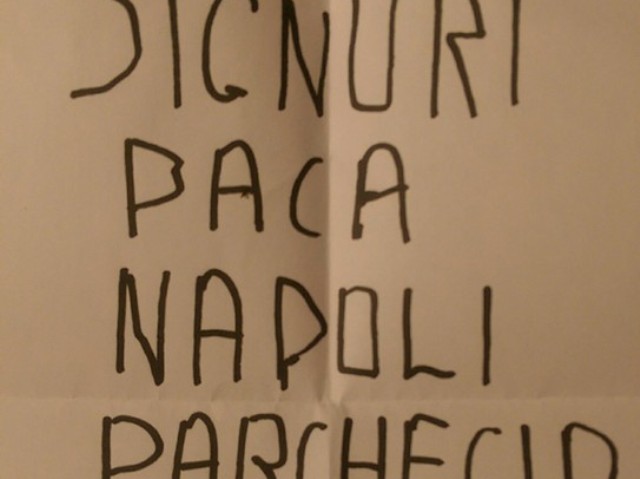 SIGNORI
PACA
NAPOLI
PARCHEGIO